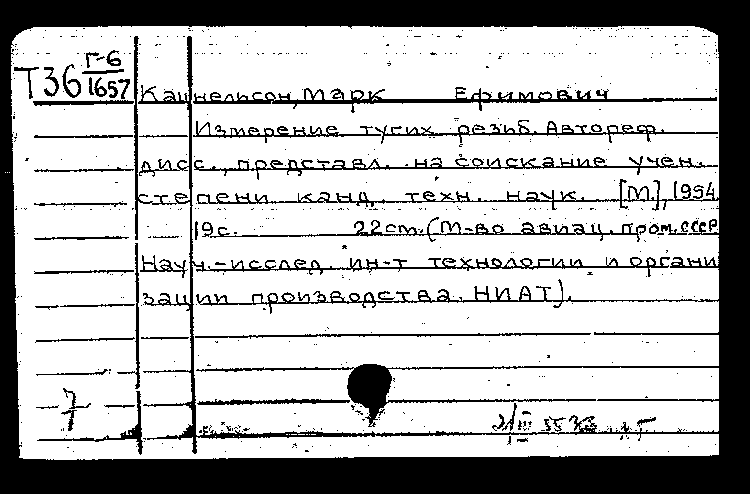 Г-6
Т36 1657
Кацнельсон, Марк Ефимович
Измерение тугих резьб. Автореф.
дисс., представл. на соискание учен.
степени канд. техн. наук. [М.], 1954
19с. 22см. (М-во авиац. пром. СССР
Науч.-исслед. ин-т технологии и органи
зации производства. НИАТ).
7
2/III 55